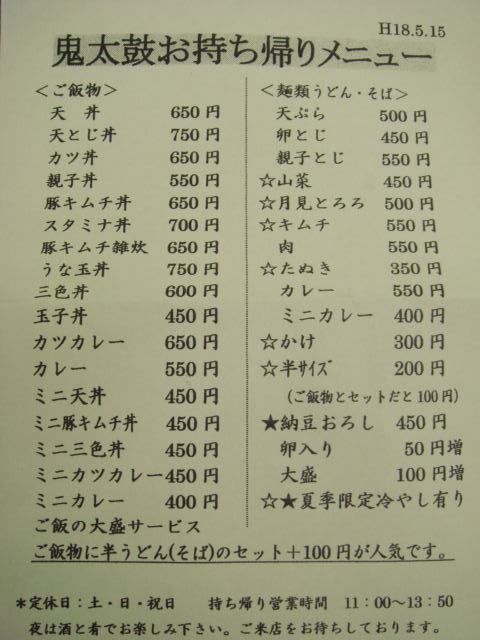 H18.5.15
鬼太鼓お持ち帰りメニュー
＜ご飯物＞
天　丼　650円
天とじ丼　750円
カツ丼　650円
親子丼　550円
豚キムチ丼　650円
スタミナ丼　700円
豚キムチ雑炊　650円
うな玉丼　750円
三色丼　600円
玉子丼　450円
カツカレー　650円
カレー　550円
ミニ天丼　450円
ミニ豚キムチ丼　450円
ミニ三色丼　450円
ミニカツカレー450円
ミニカレー　400円
ご飯の大盛サービス
＜麺類うどん・そば＞
天ぷら　500円
卵とじ　450円
親子とじ　550円
☆山菜　450円
☆月見とろろ　500円
☆キムチ　550円
肉　550円
☆たぬき　350円
カレー　550円
ミニカレー　400円
☆かけ　300円
☆半サイズ　200円
（ご飯物とセットだと100円）
★納豆おろし　450円
卵入り　50円増
大盛　100円増
☆★夏季限定冷やし有り
ご飯物に半うどん(そば)のセット＋100円が人気です。
＊定休日：土・日・祝日　持ち帰り営業時間　11：00～13：50
夜は酒と肴でお楽しみ下さい。ご来店をお待ちしております。